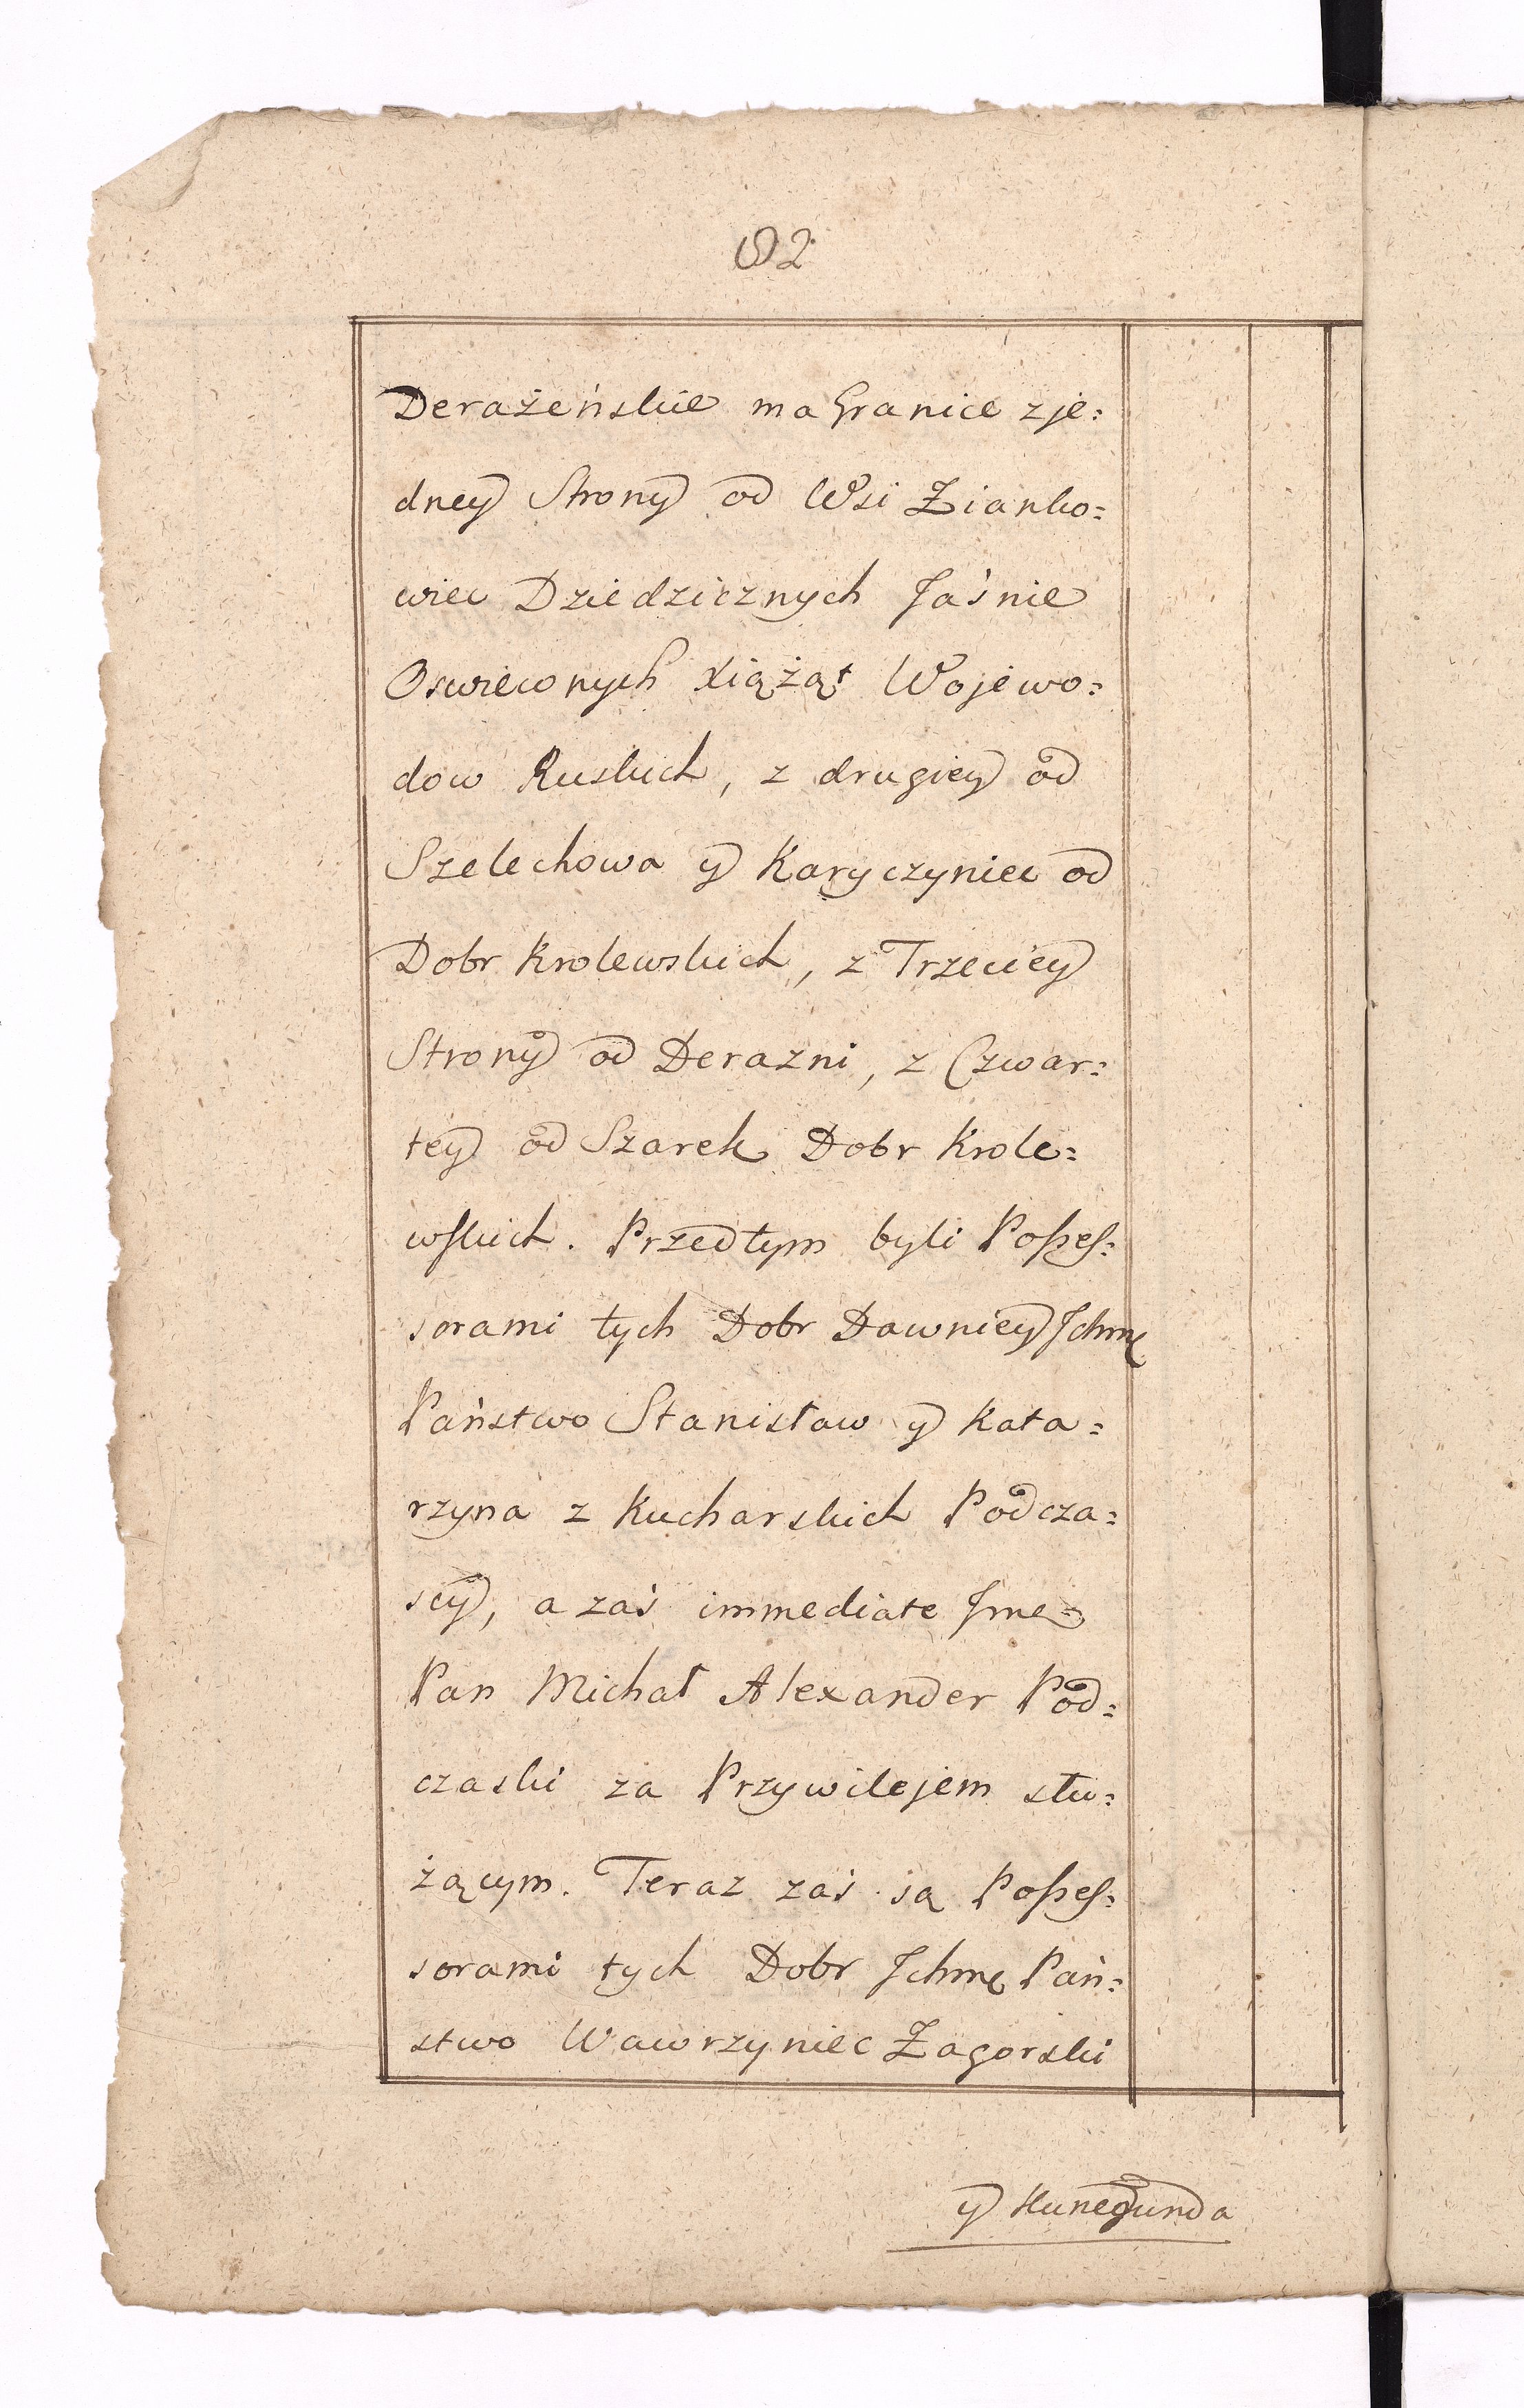 82
Derażeńskie ma Granice zje=
dney Strony od Wsi Zianko=
wiec Dziedzicznych Jaśnie
Oswieconych Xiążąt Wojewo=
dow Ruskich, z drugiey od
Szelechowa y Karyczyniec od
Dobr Krolewskich, z Trzeciey
Strony od Derazni, z Czwar=
tey od Szarek Dobr Krole=
wskich. Przedtym byli Posses=
sorami tych Dobr Dawniey Ichmę
Państwo Stanisław y Kata=
rzyna z Kucharskich Podcza=
scy, a zaś immediate Jme
Pan Michał Alexander Pod=
czaski za Przywilejem słu=
żącym. Teraz zaś są Posses=
sorami tych Dobr Ichmę Pań=
stwo Wawrzyniec Zagorski
y Kunegunda